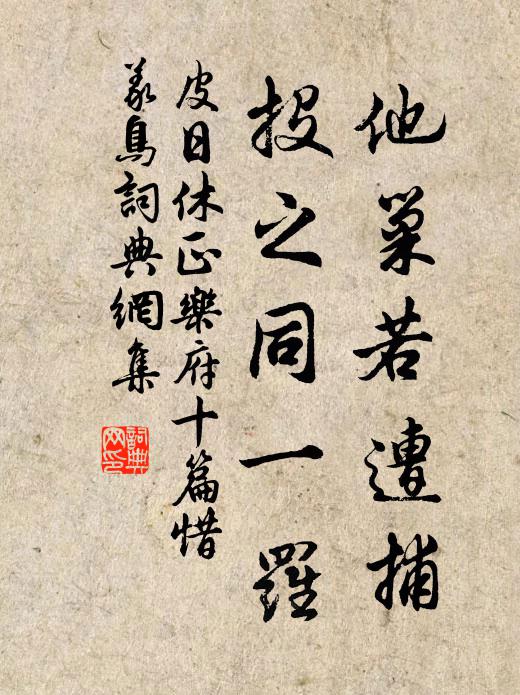 他巢若遭捕
投之同一羅
皮日休正樂府十篇惜
義鳥詞典網集
詞典
网印